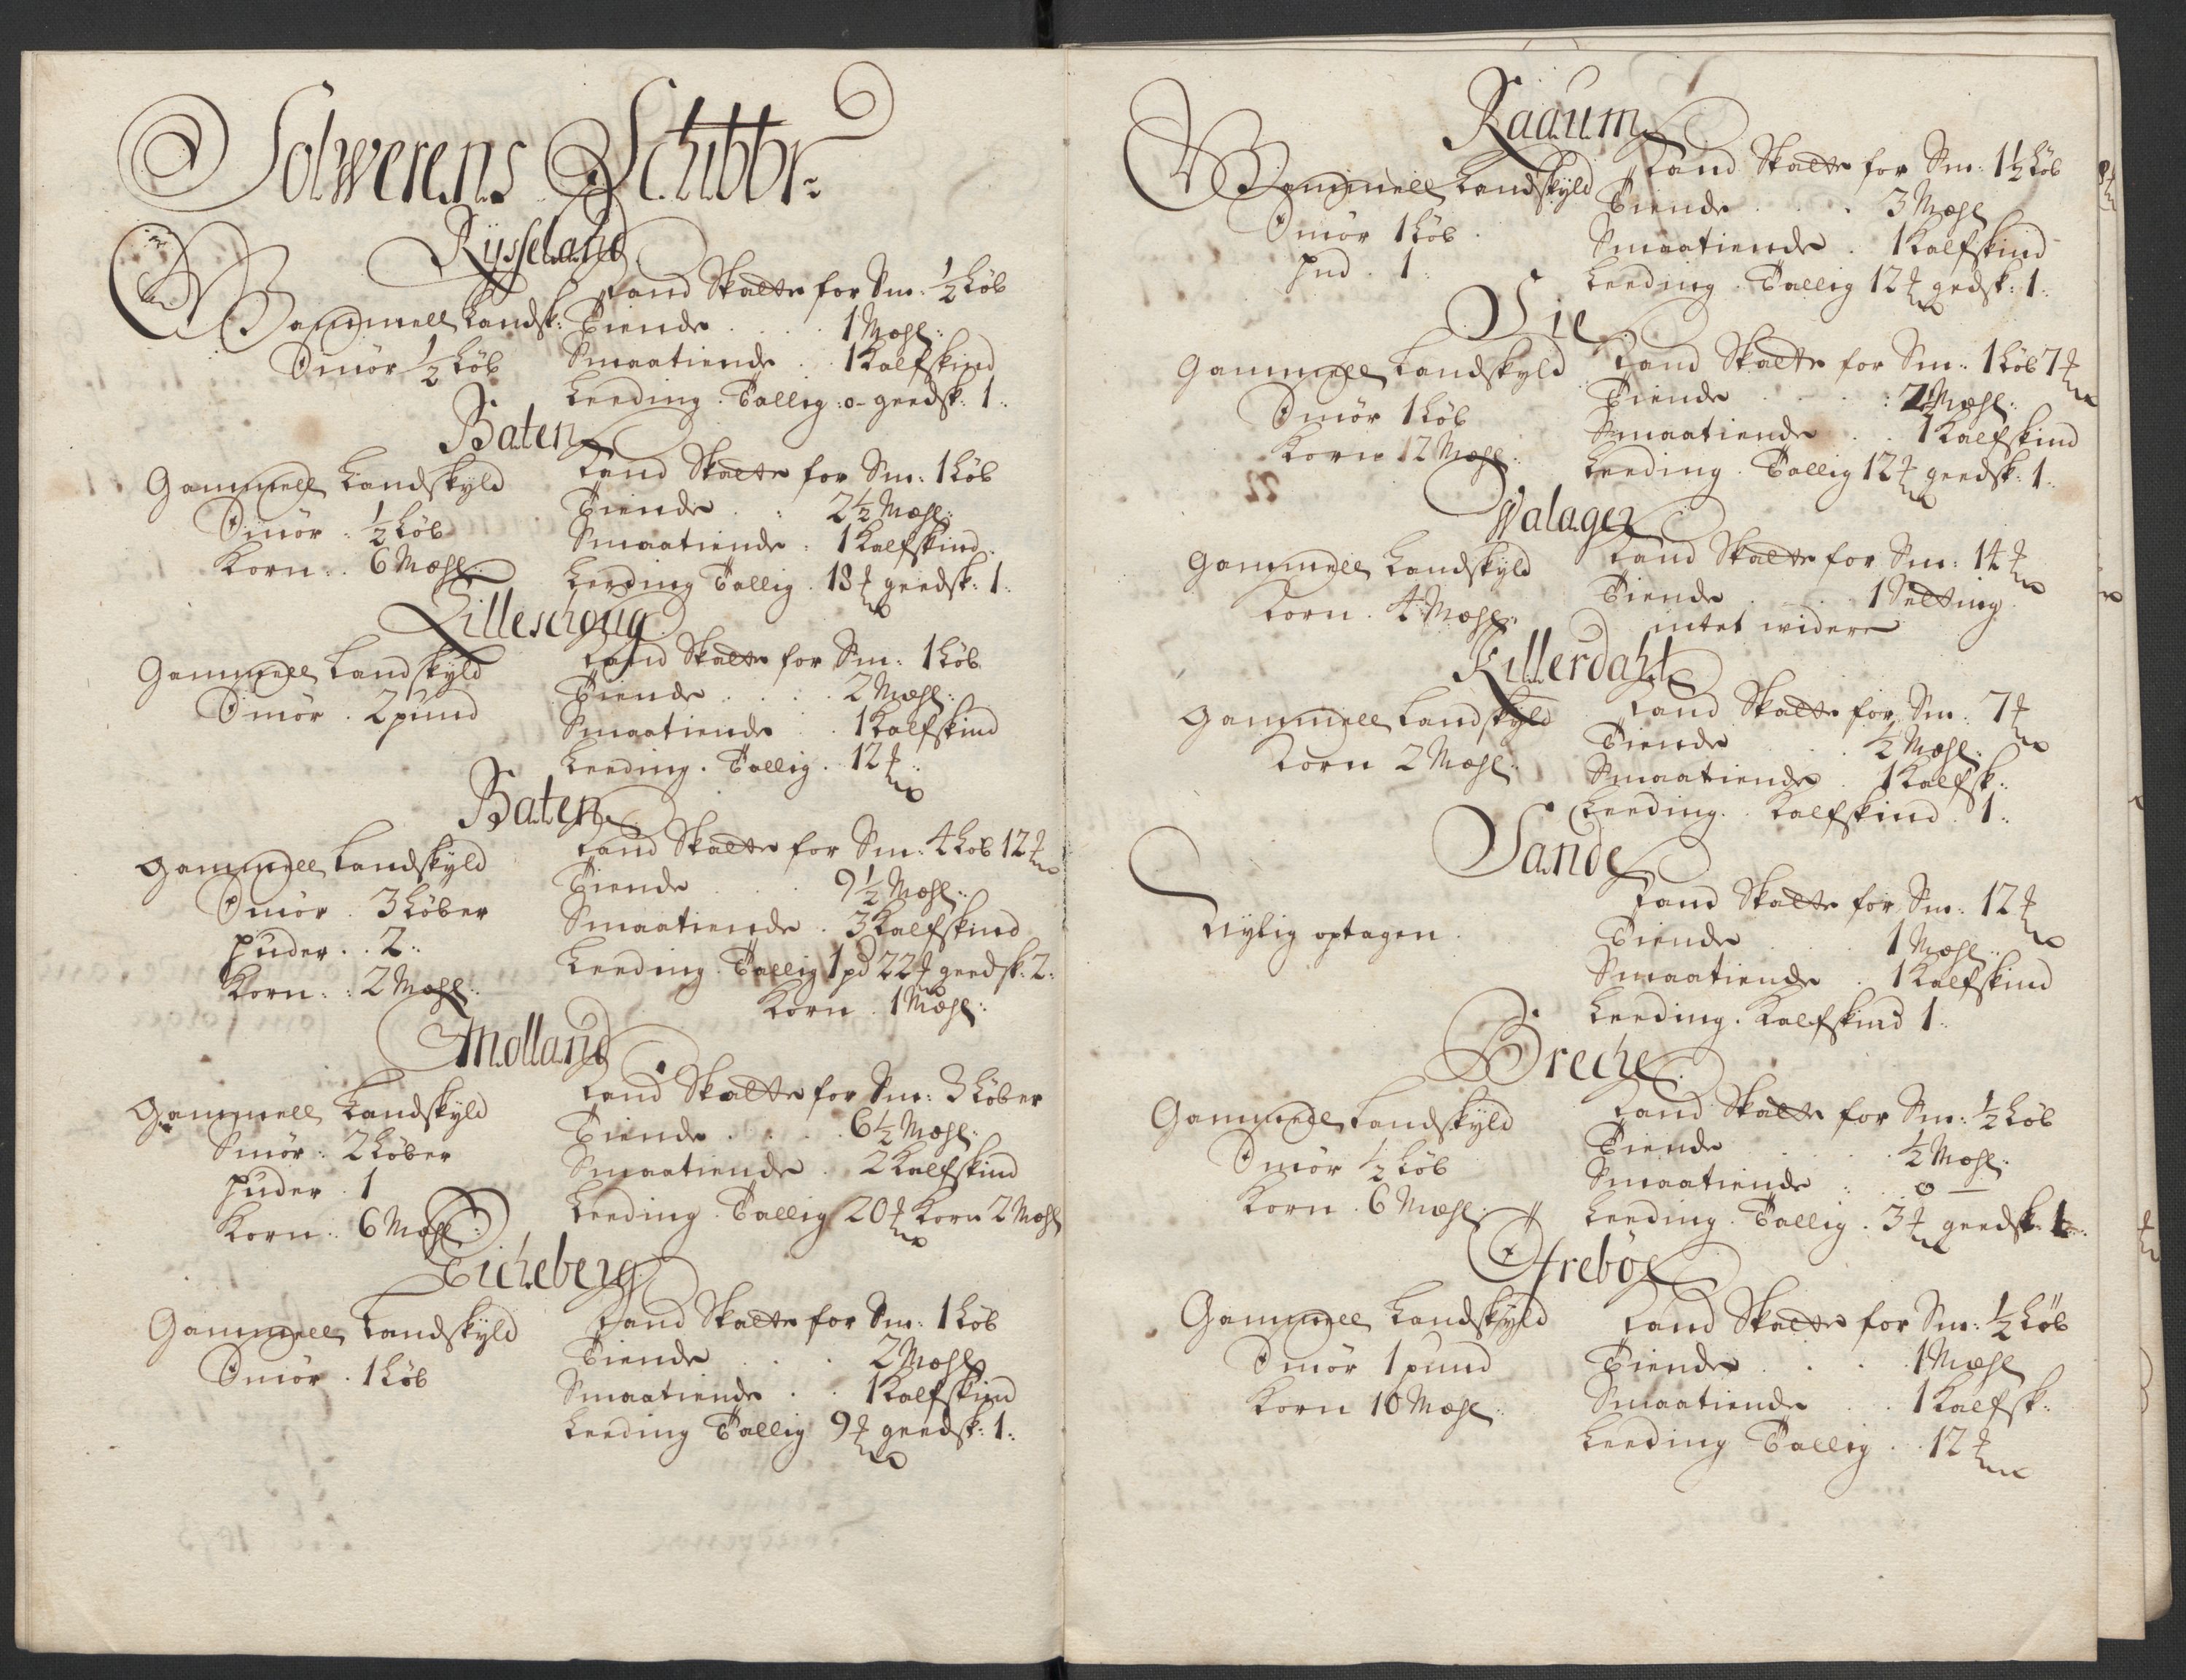 Solwerens Schibbr:
Rysseland
Gammell Landsk:
Smör ½ Löb
Land Skatt for Sm: ½ Löb
Tiende . . . . 1 Mæhl:
Smaatiende . . 1 Kalfskind
Leeding . Tallig :o- geedsk: 1:
Baten
Gammell Landskyld
Smör : ½ Löb
Korn : . 6 Mæhl:
Land Skatt for Sm: 1 Löb
Tiende . : 2½ Mæhl:
Smaatiende : 1 Kalfskind
Leeding Tallig . 18 ℔ geedsk: 1:
Lilleschoug
Gammell Landskyld
Smör . 2 pund
Land Skatt for Sm: 1 Löb
Tiende . . . . 2 Mæhl:
Smaatiende . . 1 Kalfskind
Leeding . Tallig . 12 ℔
Baten
Gammell Landskyld
Smör . 3 Löber
Huder . . 2:
Korn : : 2 Mæhl:
Land Skatt for Sm: 4 Löb 12 ℔
Tiende . . . 9½ Mæhl:
Smaatiende . 3 Kalfskind
Leeding . Tallig 1 pd 22 ℔ geedsk: 2:
Korn . 1 Mæhl:
Molland
Gammell Landskyld
Smör : 2 Löber
Huder . 1
Korn : 6 Mæhl:
Land Skatte for Sm: 3 Löber
Tiende . . . . 6½ Mæhl:
Smaatiende . 2 Kalfskind
Leeding . Tallig 20 ℔ Korn 2 Mæhl
Eicheberg
Gammell Landskyld
Smör . 1 Löb
Land Skatt for Sm: 1 Löb
Tiende . . . 2 Mæhl
Smaatiende . . 1 Kalfskind
Leeding Tallig 9 ℔ geedsk: 1:
Raaum
Gammell Landskyld
Smör 1 Löb
Hud . 1:
Land Skatte for Sm: 1½ Löb
Tiende . . . 3 Mæhl
Smaatiende . 1 Kalfskind
Leeding . Tallig 12 ℔ gedsk: 1:
Sie
Gammell Landskyld
Smör 1 Löb
Korn 12 Mæhl:
Land Skatte for Sm: 1 Löb 7 ℔
Tiende . . . : Mæhl:
Smaatiende . . 1 Kalfskind
Leeding . Tallig 12 ℔ geedsk: 1:
Walager
Gammell Landskyld
Korn . 4 Mæhl:
Land Skatte for Sm: 14 ℔
Tiende . . . 1 Setting
intet widere
Killerdahl
Gammell Landskyld
Korn 2 Mæhl:
Land Skatte for Sm: 7 ℔
Tiende . . . ½ Mæhl:
Smaatiende . 1 Kalfsk:
Leeding . . Kalfskind . 1:
Sande
Nylig optagen
Land Skatte for Sm: 12 ℔
Tiende . . . 1 Mæhl:
Smaatiende . 1 Kalfskind
Leeding . Kalfskind 1:
Breche
Gammell Landskyld
Smör ½ Löb
Korn . 6 Mæhl:
Land Skatte for Sm: ½ Löb
Tiende . . . . ½ Mæhl:
Smaatiende : . o —
Leeding . Tallig . 3 ℔ geedsk: 1
Ofreböe
Gammell Landskyld
Smör 1 pund
Korn 10 Mæhl:
Land Skatte for Sm: ½ Löb
Tiende . . . 1 Mæhl
Smaatiende . . 1 Kalfsk:
Leeding Tallig . . 12 ℔